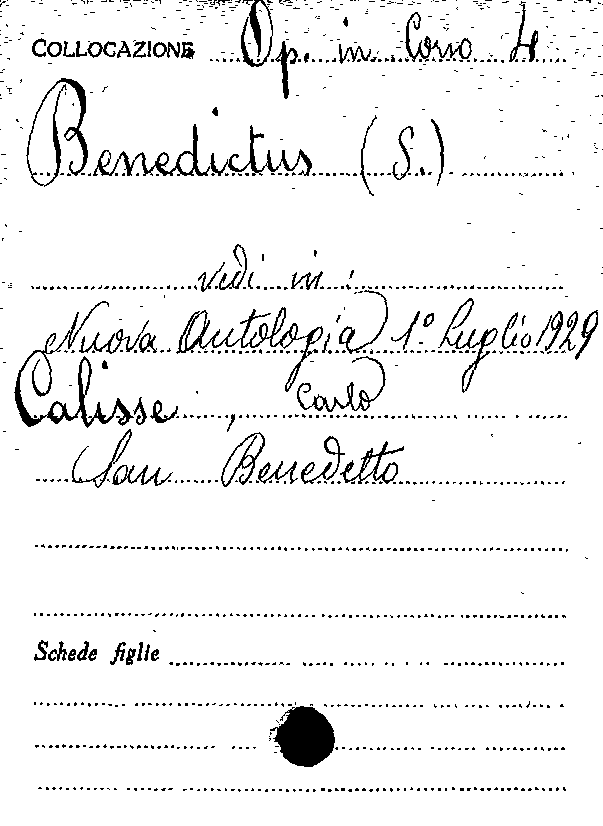 COLLOCAZIONE Op. in Corso 4
Benedictus (S.)
vedi in :
Nuova Antologia 1° Luglio 1929
Calisse, Carlo
San Benedetto
Schede figlie